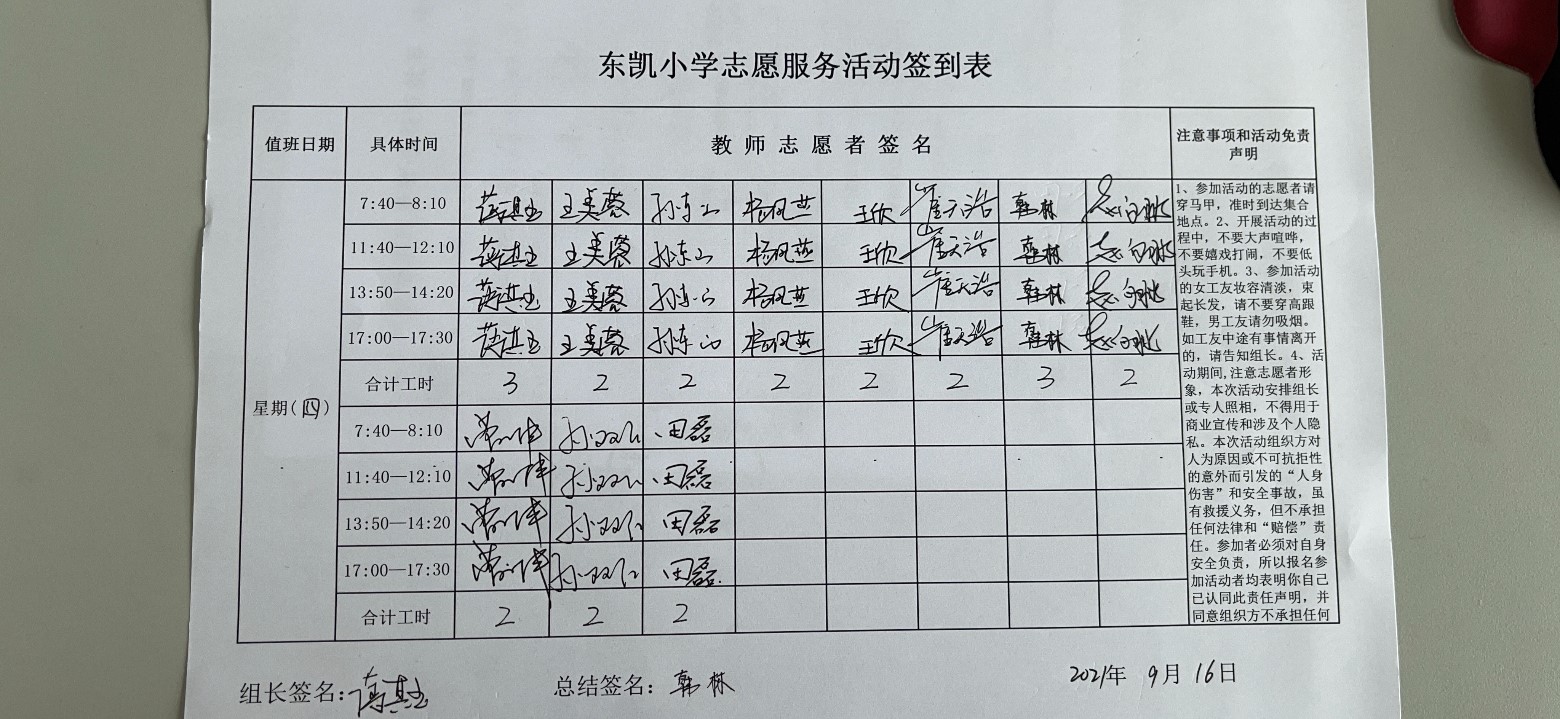 东凯小学志愿服务活动签到表
值班日期 具体时间 教师志愿者签名 注意事项和活动免责声明
星期(四)
7:40—8:10 王美蓉 杨佩燕 王欣 崔天浩 韩林
11:40—12:10 王美蓉 杨佩燕 王欣 崔天浩 韩林
13:50—14:20 王美蓉 杨佩燕 王欣 崔天浩 韩林
17:00—17:30 王美蓉 杨佩燕 王欣 崔天浩 韩林
合计工时 3 2 2 2 2 2 3 2
7:40—8:10 孙双 田磊
11:40—12:10 孙双 田磊
13:50—14:20 孙双 田磊
17:00—17:30 孙双 田磊
合计工时 2 2 2
1、参加活动的志愿者请
穿马甲，准时到达集合
地点。2、开展活动的过
程中，不要大声喧哗，
不要嬉戏打闹，不要低
头玩手机。3、参加活动
的女工友妆容清淡，束
起长发，请不要穿高跟
鞋，男工友请勿吸烟。
如工友中途有事情离开
的，请告知组长。4、活
动期间，注意志愿者形
象，本次活动安排组长
或专人照相，不得用于
商业宣传和涉及个人隐
私。本次活动组织方对
人为原因或不可抗拒性
的意外而引发的“人身
伤害”和安全事故，虽
有救援义务，但不承担
任何法律和“赔偿”责
任。参加者必须对自身
安全负责，所以报名参
加活动者均表明你自己
已认同此责任声明，并
同意组织方不承担任何
组长签名： 总结签名：韩林 2021年 9月16日